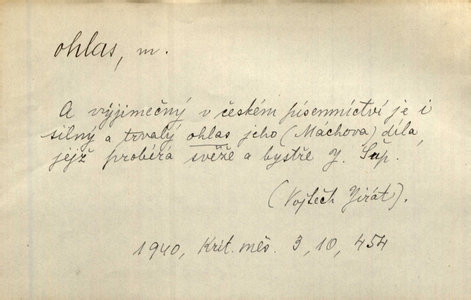 ohlas, m.
A výjimečný v českém písemnictví je i
silný a trvalý ohlas jeho (Máchova) díla,
jejž probírá svěže a bystře J. Šup.
(Vojtěch Jirát).
1940, Krit. měs. 3, 10, 454